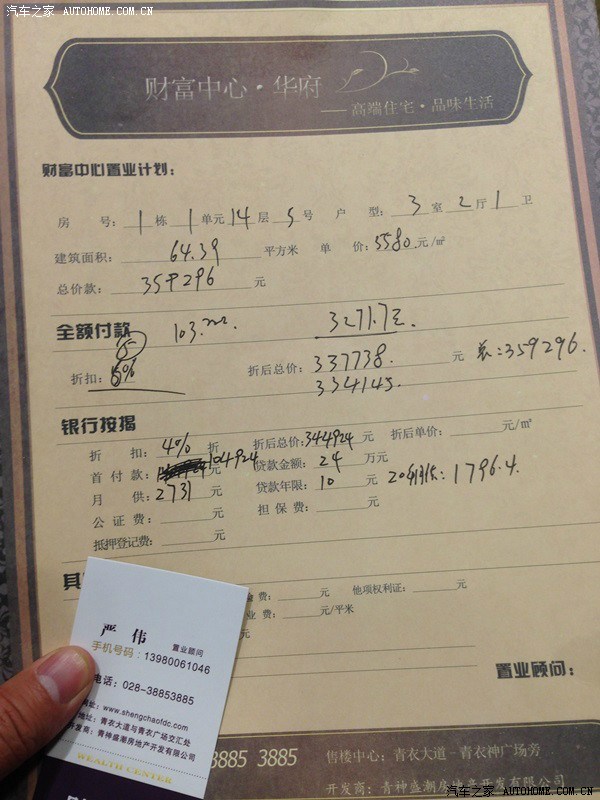 汽车之家 AUTOHOME.COM.CN
财富中心·华府
——高端住宅·品味生活
财富中心置业计划：
房 号: 1 栋 1 单元 14 层 5 号 户 型: 3 室 2 厅 1 卫
建筑面积: 64.39 平方米 单 价: 5580 元/㎡
总价款: 359296 元
3271.7元
全额付款 103.
折扣: 6% 折后总价: 337738. 元 总:359296.
334145.
银行按揭
折 扣: 4% 折 折后总价: 344924 元 折后单价: 元/㎡
首 付 款: 104924 元 贷款金额: 24 万元
月 供: 2731 元 贷款年限: 10 元 20年 : 1796.4.
公 证 费: 元 担 保 费: 元
抵押登记费: 元
其
费: 元 他项权利证: 元
业 费: 元/平米
元
置业顾问：
严 伟 置业顾问
手机号码：13980061046
电话：028-38853885
网址：www.shengchaofdc.com
地址：青衣大道与青衣广场交汇处
开发商：青神盛潮房地产开发有限公司
WEALTH CENTER
3885 3885 售楼中心：青衣大道－青衣神广场旁
开发商：青神盛潮房地产开发有限公司
汽车之家 AUTOHOME.COM.CN